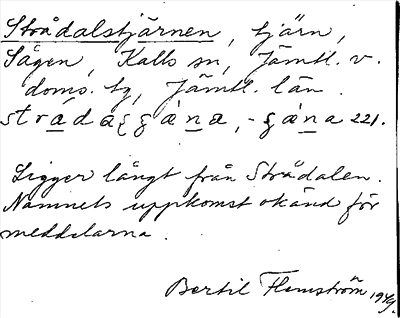 Strådalstjärnen, tjärn,
Sågen, Kalls sn, Jämtl. v.
doms. tg, Jämtl. län.
221.
Ligger långt från Strådalen.
Namnets uppkomst okänd för
meddelarna.
Bertil Flemström 1949.